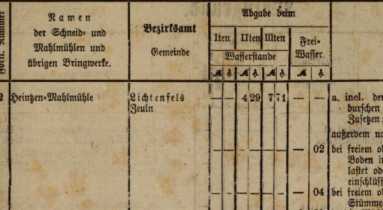 Namen
der Schneid- und
Mahlmühlen und
übrigen Bringwerke.
Bezirksamt
Gemeinde
Abgabe beim
Iten IIten IIIten
Wasserstande
Frei-
Wasser.
M. ₰ M. ₰ M. ₰ M. ₰
Heintzen-Mahlmühle
Lichtenfels
Zeuln
— — 4 29 7 71 — —
a. incl. der
burschen
Zusetzen
außerdem
— 02 bei freiem
Boden
lastet
einschlüss
— 04 bei freiem
Stümme